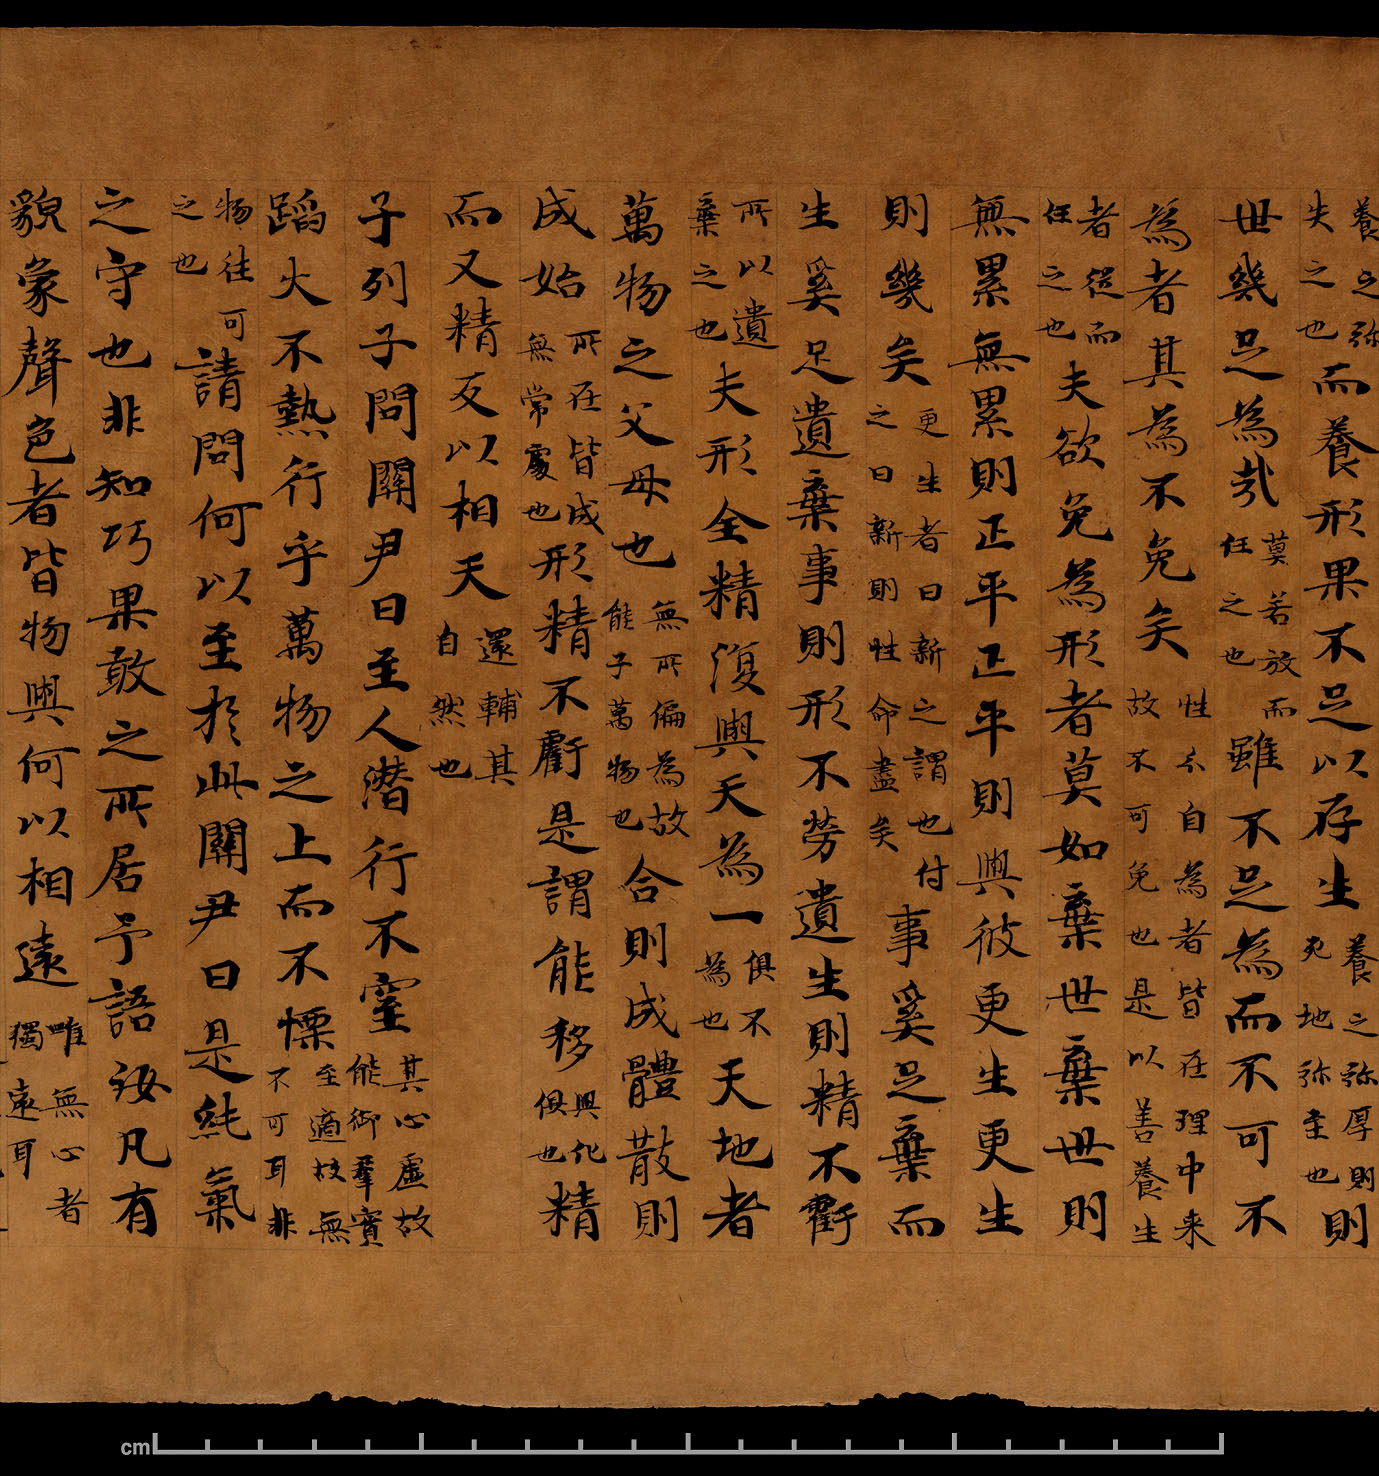 養之弥失之也而養形果不足以存生養之弥厚則死地弥至也則
世幾足為哉莫若放而任之也雖不足為而不可不
為者其為不免矣性分自為者皆在理中来故不可免也是以善養生
者從而任之也夫欲免為形者莫如棄世棄世則
無累無累則正平正平則與彼更生更生
則幾矣更生者日新之謂也付之日新則性命盡矣事奚足棄而
生奚足遺棄事則形不勞遺生則精不虧
所以遺棄之也夫形全精復與天為一俱不為也天地者
萬物之父母也無所偏為故能子萬物也合則成體散則
成始所在皆成無常處也形精不虧是謂能移與化俱也精
而又精反以相天還輔其自然也
子列子問關尹曰至人潛行不窒其心虛故能御羣實
蹈火不熱行乎萬物之上而不慄至適故無不可耳非
物往可之也請問何以至於此關尹曰是純氣
之守也非知巧果敢之所居予語汝凡有
貌象聲色者皆物與何以相遠唯無心者獨遠耳
cm